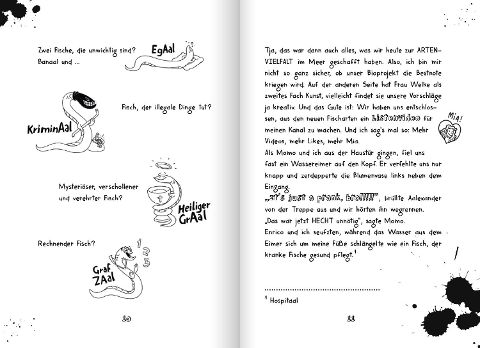 Zwei Fische, die unwichtig sind?
Banaal und ...
EgAal
Fisch, der illegale Dinge tut?
KriminAal
Mysteriöser, verschollener
und verehrter Fisch?
Heiliger
GrAal
Rechnender Fisch?
1 2 3
Graf
ZAal
Tja, das war dann auch alles, was wir heute zur ARTEN-
VIELFALT im Meer geschafft haben. Also, ich bin mir
nicht so ganz sicher, ob unser Bioprojekt die Bestnote
kriegen wird. Auf der anderen Seite hat Frau Welke als
zweites Fach Kunst, vielleicht findet sie unsere Vorschläge
ja kreativ. Und das Gute ist: Wir haben uns entschlos-
sen, aus den neuen Fischarten ein
für
meinen Kanal zu machen. Und ich sag's mal so: Mehr
Videos, mehr Likes, mehr Mia.
Mia!
Als Momo und ich aus der Haustür gingen, fiel uns
fast ein Wassereimer auf den Kopf. Er verfehlte uns nur
knapp und zerdepperte die Blumenvase links neben dem
Eingang.
„It's just a prank, bro!!!!!", brüllte Alexander
von der Treppe aus und wir hörten ihn wegrennen.
„Das war jetzt HECHT unnötig", sagte Momo.
Enrico und ich seufzten, während das Wasser aus dem
Eimer sich um meine Füße schlängelte wie ein Fisch, der
kranke Fische gesund pflegt.¹
¹ Hospitaal